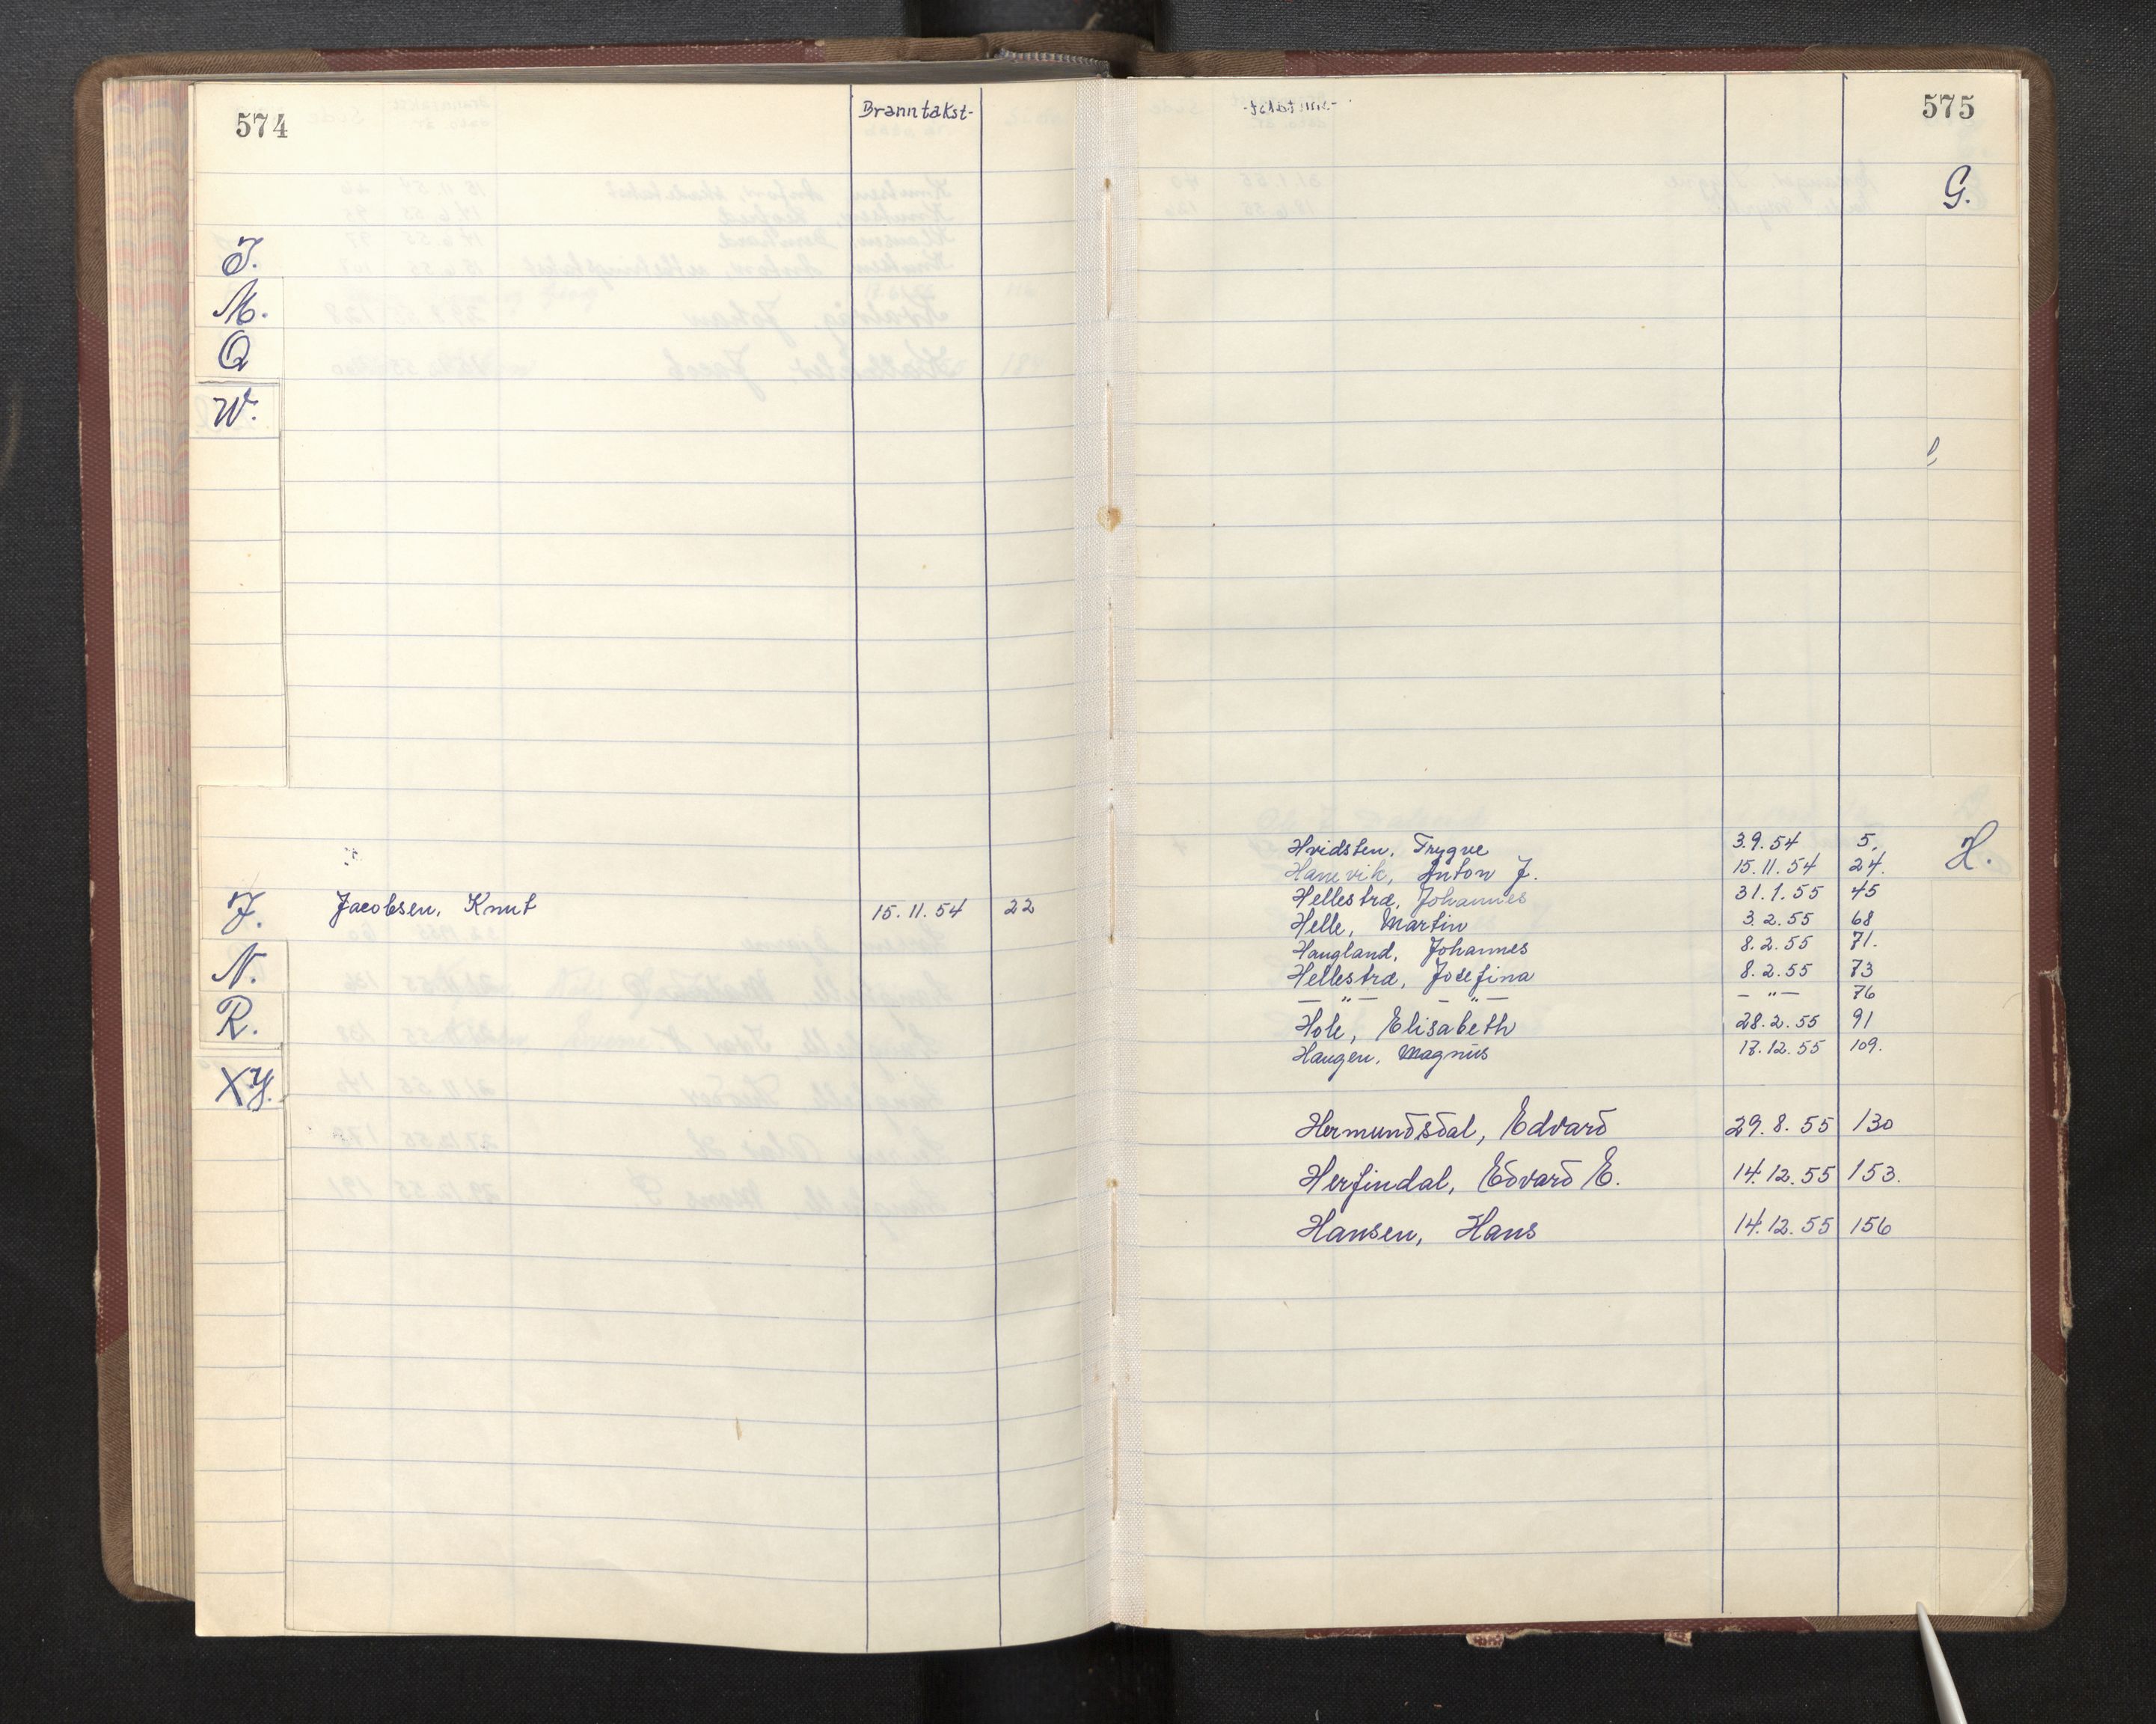 574
Branntakst-
I.
M.
Q
W.
J. Jacobsen, Knut 15.11.54 22
N.
R.
X.Y.
575
G.
H.
Hvidsten, Trygve 3.9.54 5.
Hanevik, Anton J. 15.11.54 24.
Hellestræ, Johannes 31.1.55 45
Helle, Martin 3.2.55 68
Haugland, Johannes 8.2.55 71.
Hellestræ, Josefina 8.2.55 73
— " — — " — — " — 76
Hole, Elisabeth 28.2.55 91
Haugen, Magnus 17.12.55 109.
Hermundsdal, Edvard 29.8.55 130
Herfindal, Edvard E. 14.12.55 153.
Hansen, Hans 14.12.55 156